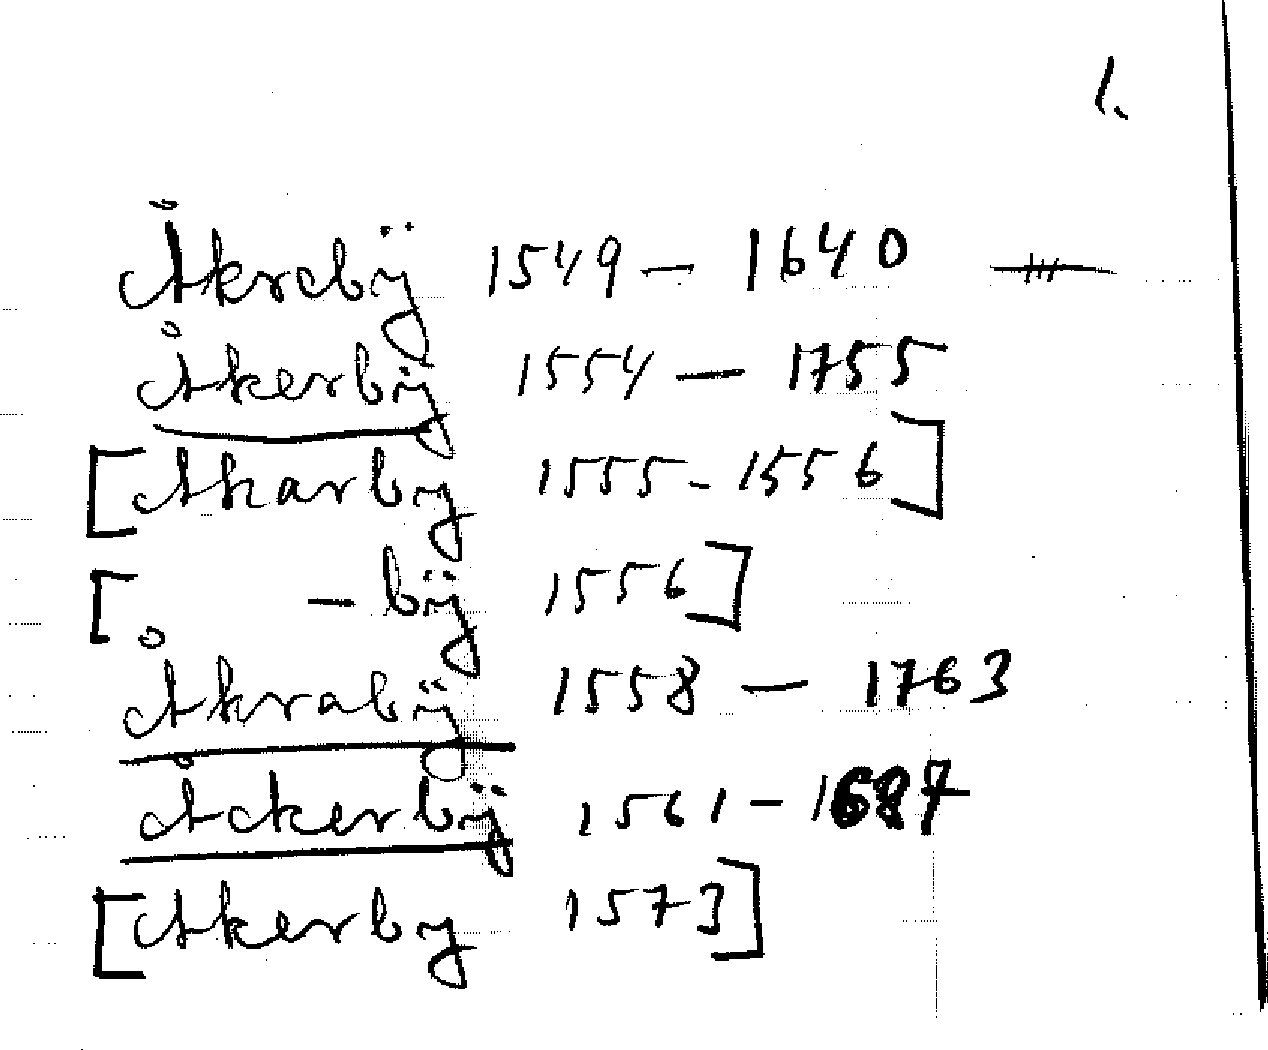 1.
Åkrebÿ 1549 – 1640
Åkerbÿ 1554 – 1755
[Akarby 1555 - 1556]
[ – bÿ 1556]
Åkrabÿ 1558 – 1763
Åckerbÿ 1561 – 1687
[Akerby 1573]